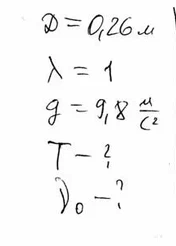 D = 0,26 м
λ = 1
g = 9,8 м/с²
T - ?
ν₀ - ?